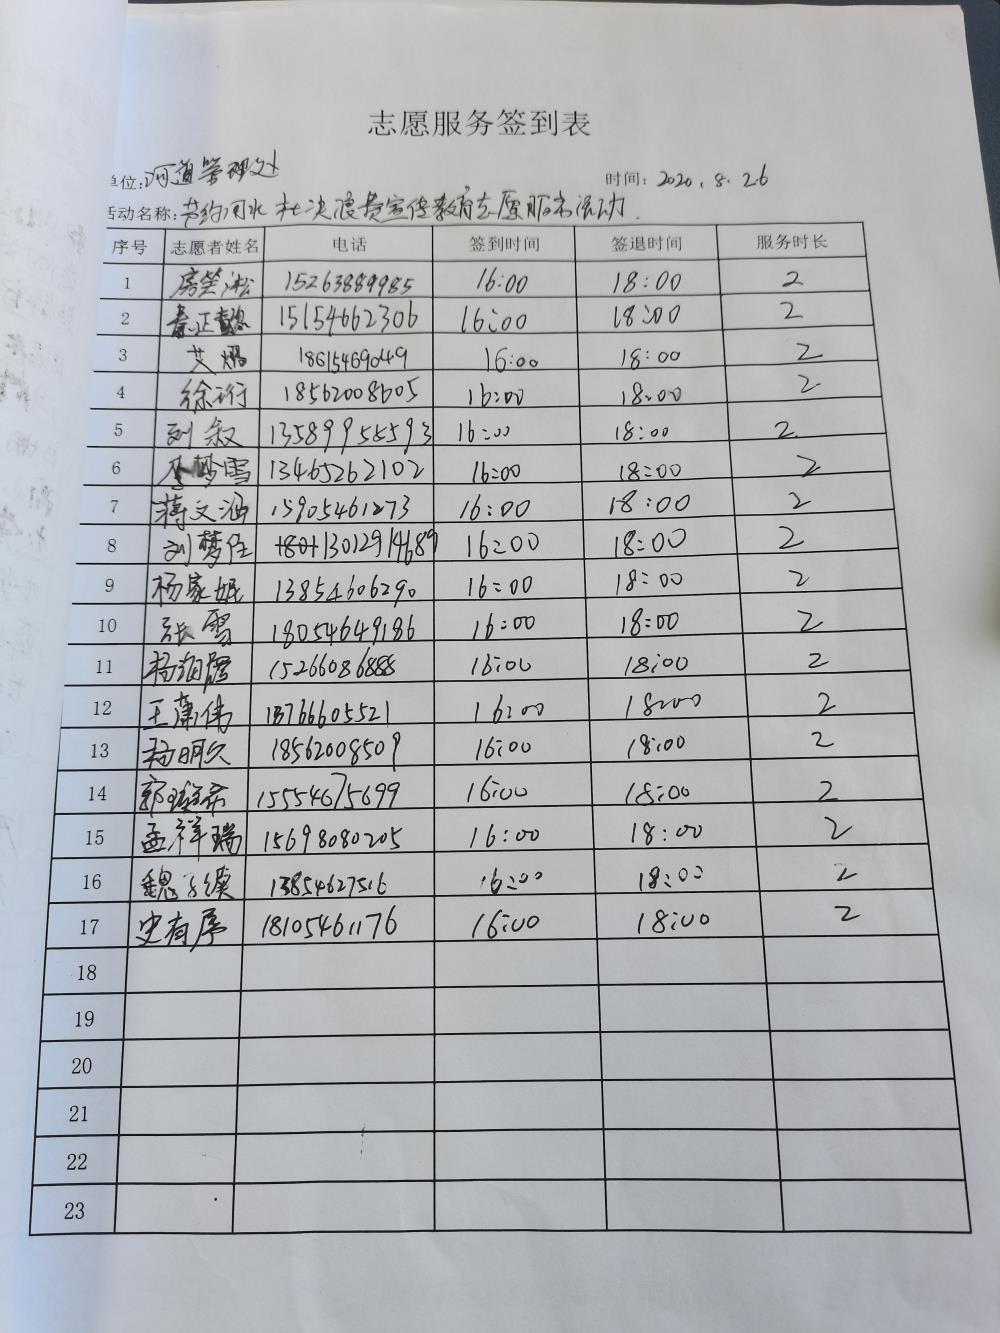 志愿服务签到表
单位:河道管理处 时间: 2020.8.26
活动名称:节约用水 杜决浪费宣传教育志愿服务活动.
序号 志愿者姓名 电话 签到时间 签退时间 服务时长
1 15263889985 16:00 18:00 2
2 秦正懿 15154662306 16:00 18:00 2
3 艾嫚 18615469049 16:00 18:00 2
4 徐珩 18562008605 16:00 18:00 2
5 刘叙 13589955593 16:00 18:00 2
6 梦雪 13465262102 16:00 18:00 2
7 蒋文涵 15905461273 16:00 18:00 2
8 刘梦佳 13012914689 16:00 18:00 2
9 杨家妮 13854606290 16:00 18:00 2
10 张雪 18054649186 16:00 18:00 2
11 15266086888 16:00 18:00 2
12 王萧伟 13766605521 16:00 18:00 2
13 杨明久 18562008509 16:00 18:00 2
14 15554675699 16:00 18:00 2
15 孟祥瑞 15698080205 16:00 18:00 2
16 魏 13854627516 16:00 18:00 2
17 史有序 18105461176 16:00 18:00 2
18
19
20
21
22
23